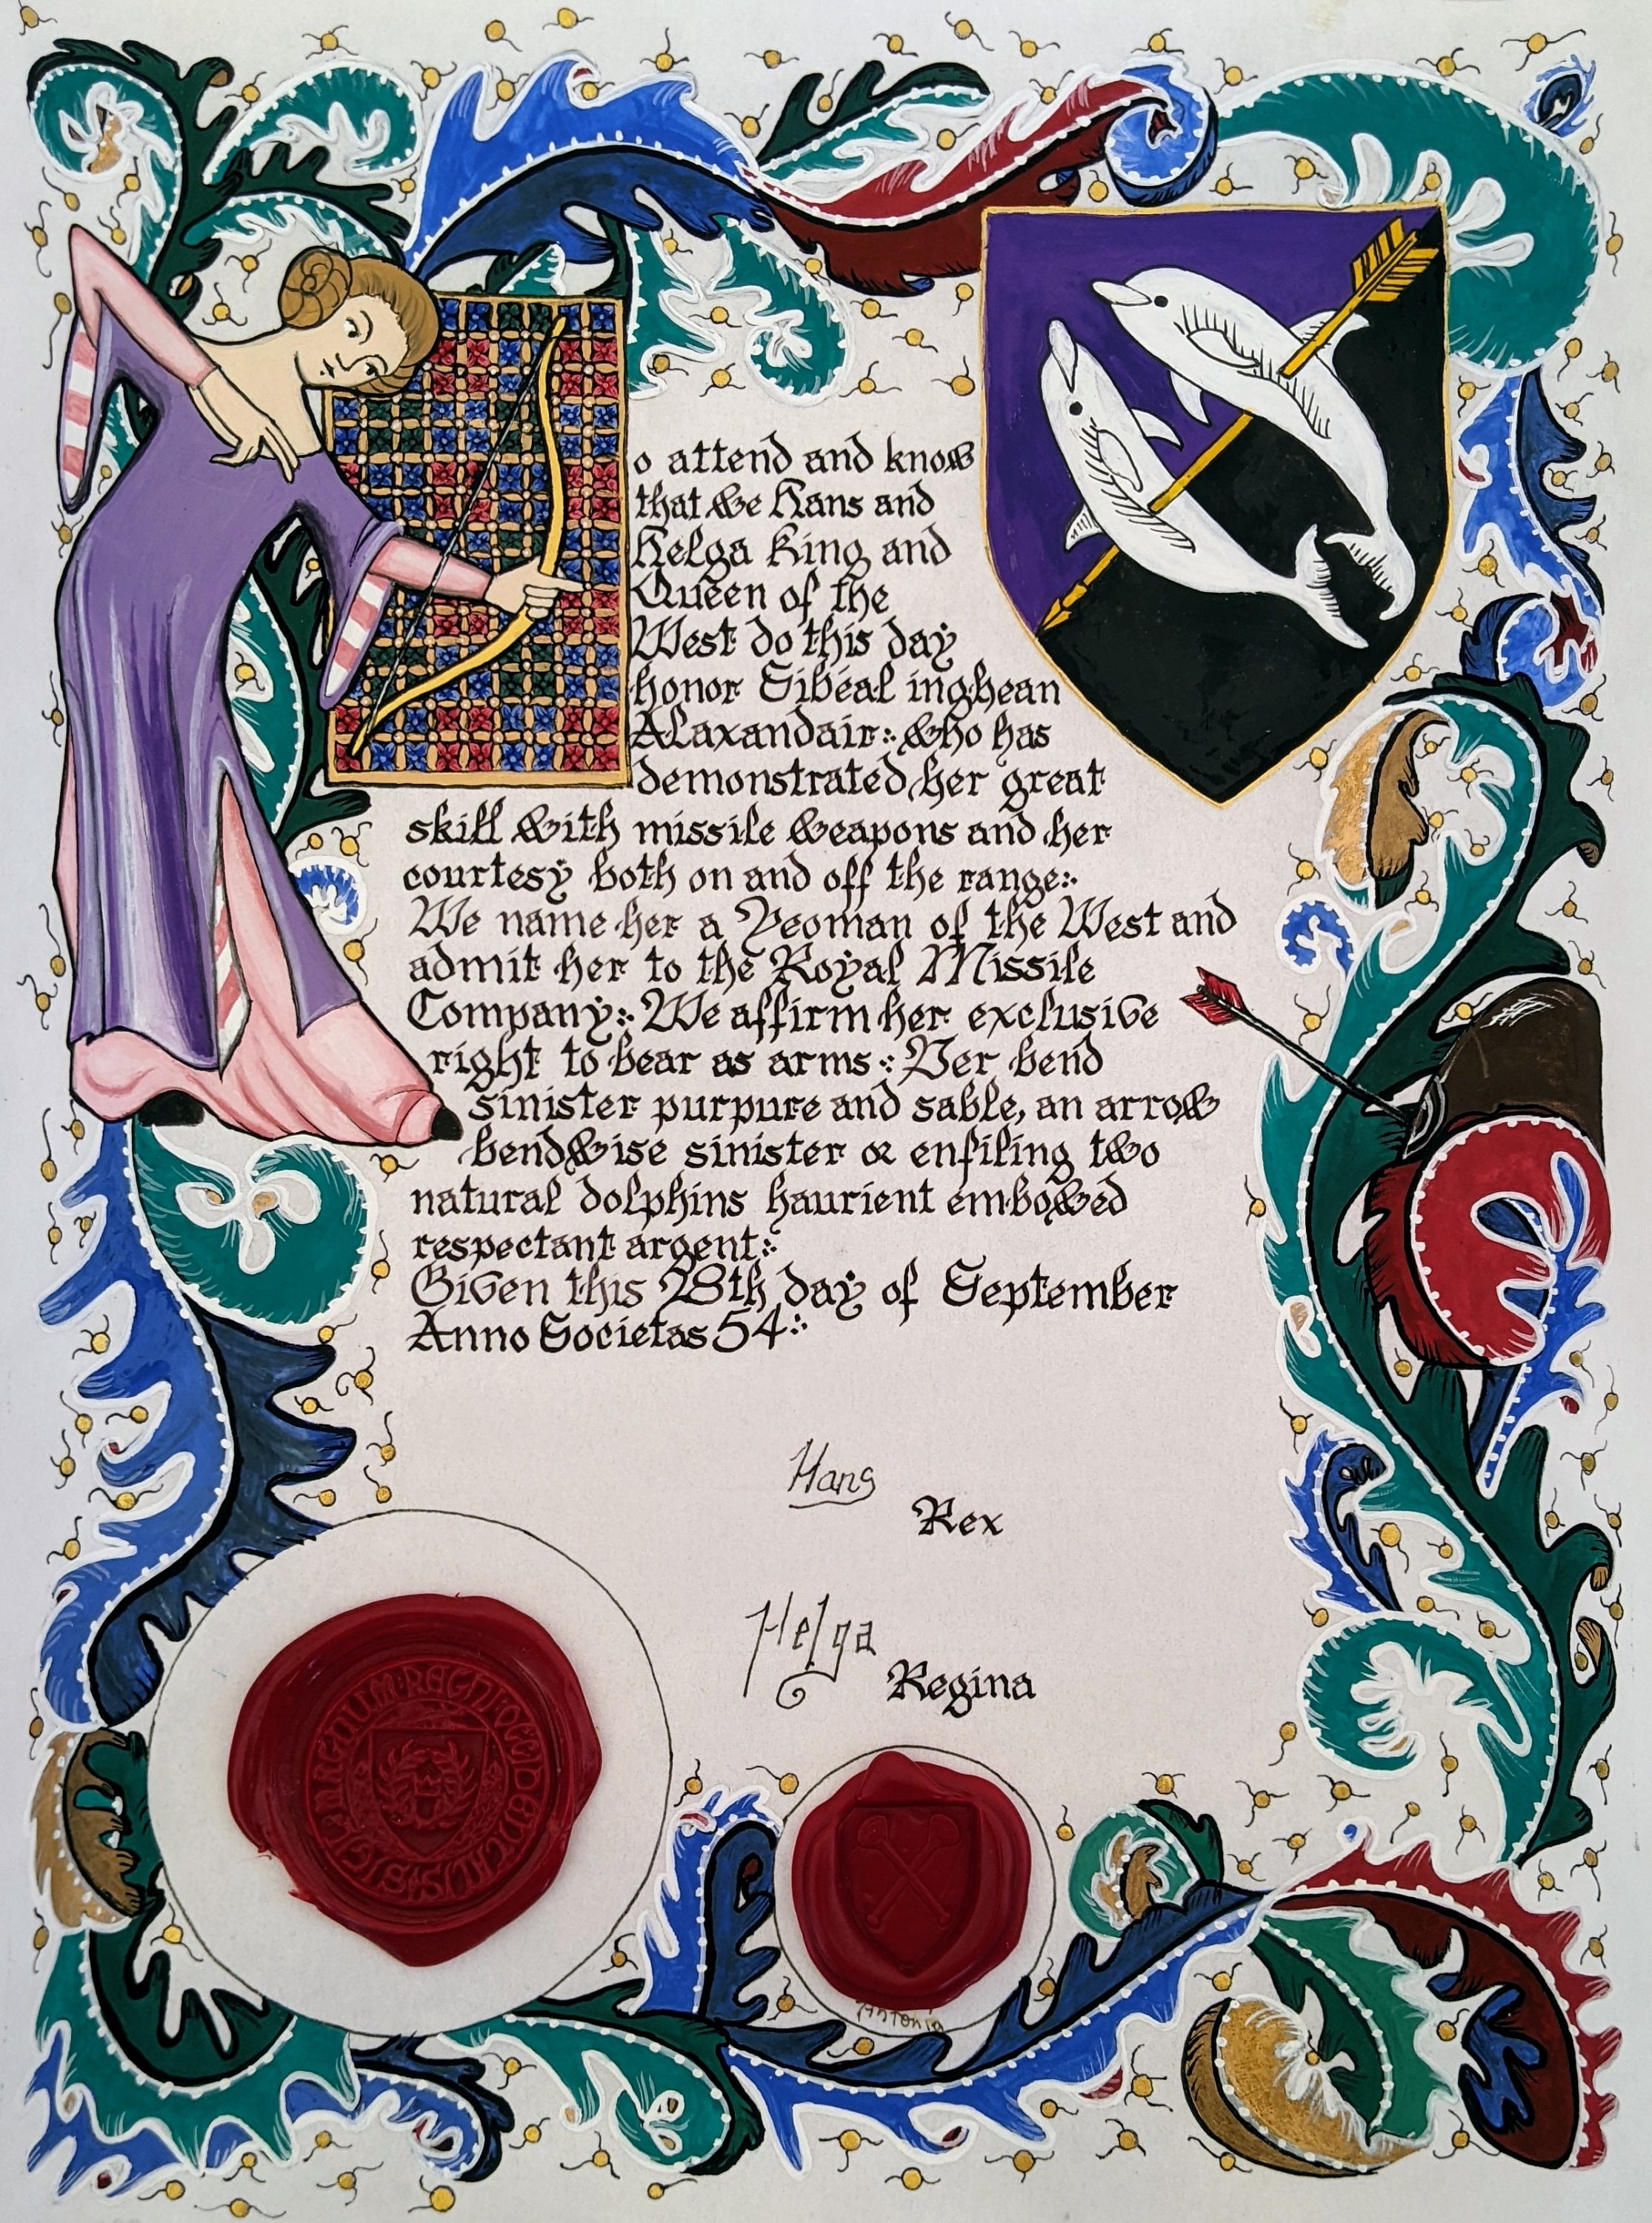 o attend and know
that we Hans and
Helga King and
Queen of the
West do this day
honor Sibéal inghean
Alaxandair: who has
demonstrated her great
skill with missile weapons and her
courtesy both on and off the range:
We name her a Yeoman of the West and
admit her to the Royal Missile
Company: We affirm her exclusive
right to bear as arms: Per bend
sinister purpure and sable, an arrow
bendwise sinister or enfiling two
natural dolphins haurient embowed
respectant argent:
Given this 28th day of September
Anno Societas 54:
Hans
Rex
Helga
Regina
Antonia